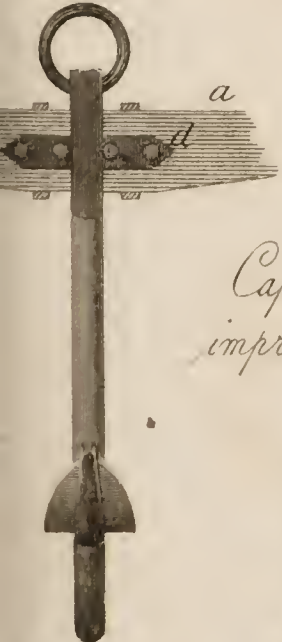 a
d
Cap
impr